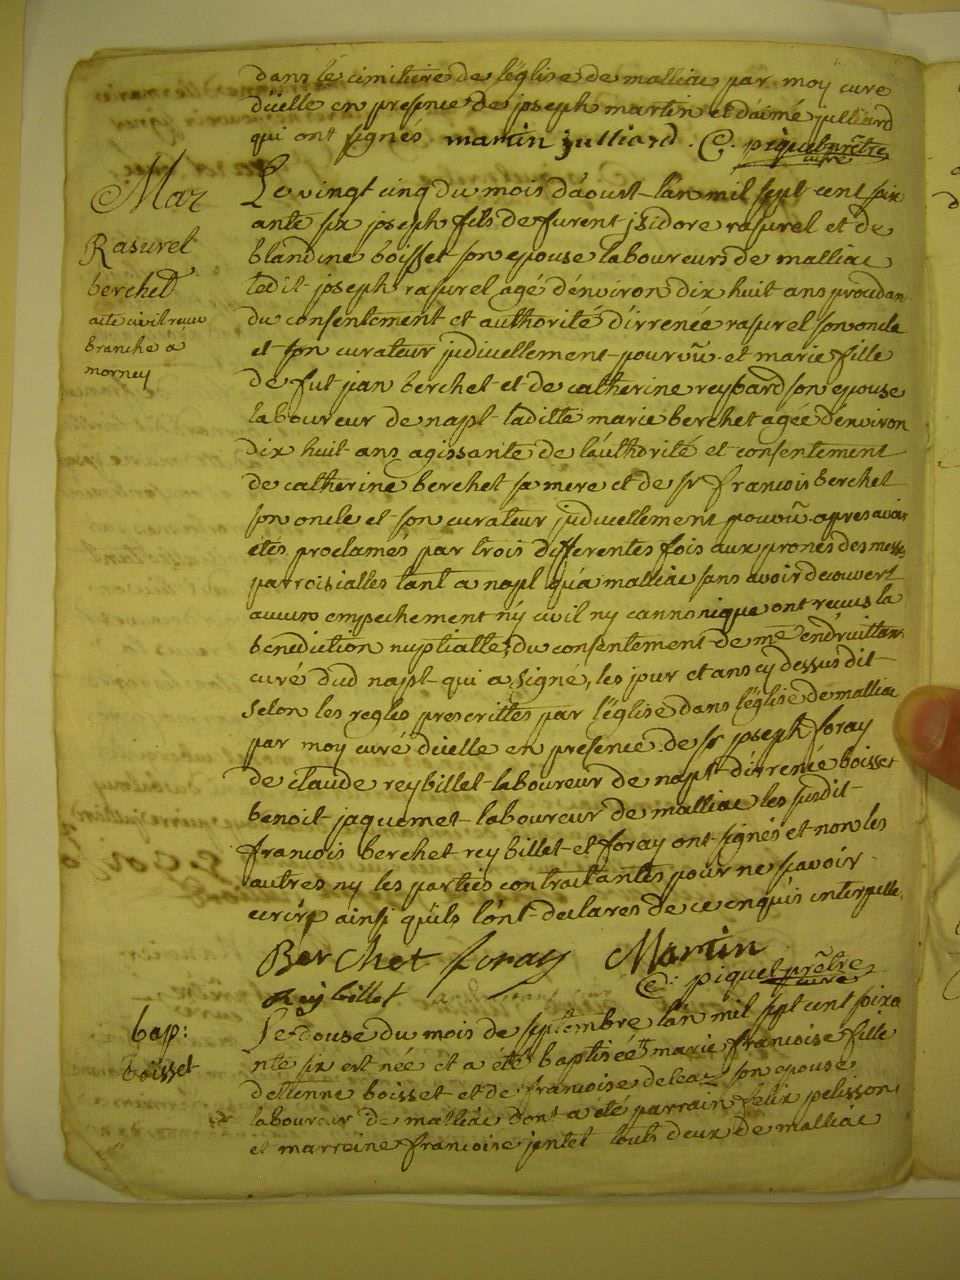 dans le cimitiere de l'églize de malliac par moy cure
d'icelle en presence de joseph martin et d'aimé julliard
qui ont signés martin julliard. C. piquet prêtre
curé
Mar
Rasurel
berchet
acte civil receu
branche a
morney
Le vingt cinq du mois d'aoust l'an mil sept cent soix
ante six joseph fils de furent jsidore rasurel et de
blandine boisset son epouse laboureurs de malliac
ledit joseph rasurel agé d'environ dix huit ans procedan
du consentement et authorité d'irrenée rasurel son oncle
et son curateur judicellement pourvû et marie fille
de fut jean berchet et de catherine reybard son epouse
laboureur de napt laditte marie berchet agée d'environ
dix huit ans agissante de l'authorité et consentement
de catherine berchet sa mere et de sr francois berchet
son oncle et son curateur judicellement pouvû apres avoir
étés proclamés par trois differentes fois aux prones des messes
parroissialles tant a napt qu'a malliac sans avoir decouvert
aucun empechement ny civil ny cannonique ont recus la
benediction nuptialle, du consentement de me
curé dud napt qui a signé, les jour et ans cy dessus dit
selon les regles prescrittes par l'églize dans l'églize de malliac
par moy curé d'icelle en presence de sr joseph foray
de claude reybillet laboureur de napt d'irrenée boisset
benoit jaquemet laboureur de malliac les susdit
francois berchet reybillet et foray ont signés et non les
autres ny les parties contractantes pour ne scavoir
ecrire ainsi qu'ils l'ont declares de ce enquis interpelle.
Berchet foray Martin
Reybillet C. piquet prêtre
curé
bap:
boisset
Le douse du mois de septembre l'an mil sept cent soixa
nte six est née et a été baptisée marie francoise fille
d'etienne boisset et de francoise deleaz son epouse
laboureur de malliac dont a été parrain felix pelisson
et marreine francoise jantet touts deux de malliac